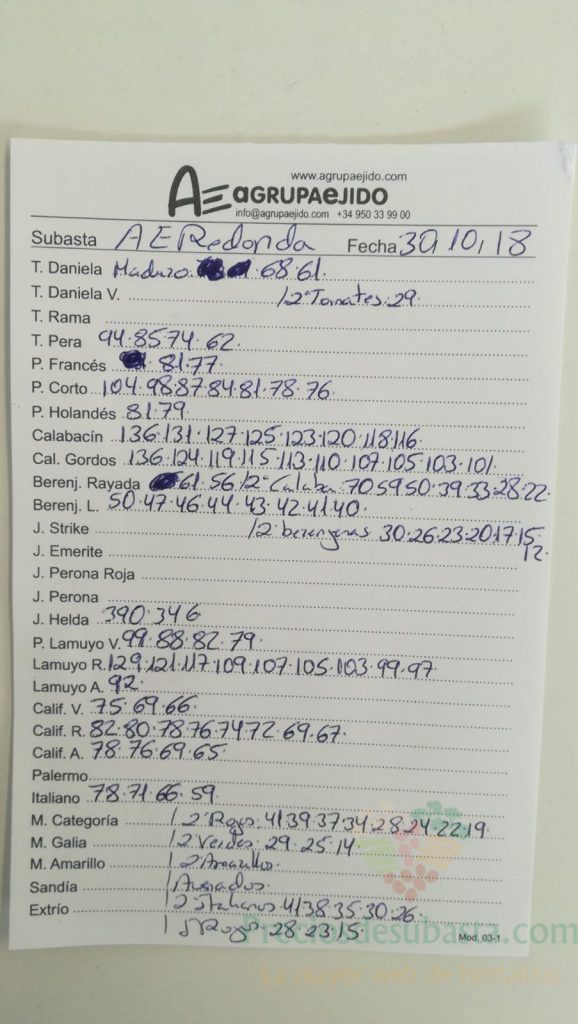 www.agrupaejido.com
AE aGRUPaeJIDO
info@agrupaejido.com +34 950 33 99 00
Subasta AERedonda Fecha 30,10,18
T. Daniela Maduro. 68.61.
T. Daniela V. /2ªTomates.29.
T. Rama
T. Pera 94.85.74.62.
P. Francés 81.77.
P. Corto 104.98.87.84.81.78.76
P. Holandés 81.79.
Calabacín 136.131.127.125.123.120.118.116.
Cal. Gordos 136.124.119.115.113.110.107.105.103.101.
Berenj. Rayada 61.56/2ª Calaba 70 59 50.39.33.28.22.
Berenj. L. 50.47.46.44.43.42.41.40.
J. Strike /2 berengenas 30.26.23.20.17.15.
12.
J. Emerite
J. Perona Roja
J. Perona
J. Helda 390.346
P. Lamuyo V. 99.88.82.79.
Lamuyo R. 129.121.117.109.107.105.103.99.97.
Lamuyo A. 92.
Calif. V. 75.69.66.
Calif. R. 82.80.78.76.74.72.69.67.
Calif. A. 78.76.69.65.
Palermo
Italiano 78.71.66.59.
M. Categoría /2ª Rojos.41.39.37.34.28.24.22.19.
M. Galia /2 Verdes 29.25.14.
M. Amarillo /2 Amarillo.
Sandía /
Extrío /2 Italianos 41.38.35.30.26.
/ 28.23.15.
Preciosdesubasta.com
Mod. 03-1
La mayor web de hortalizas